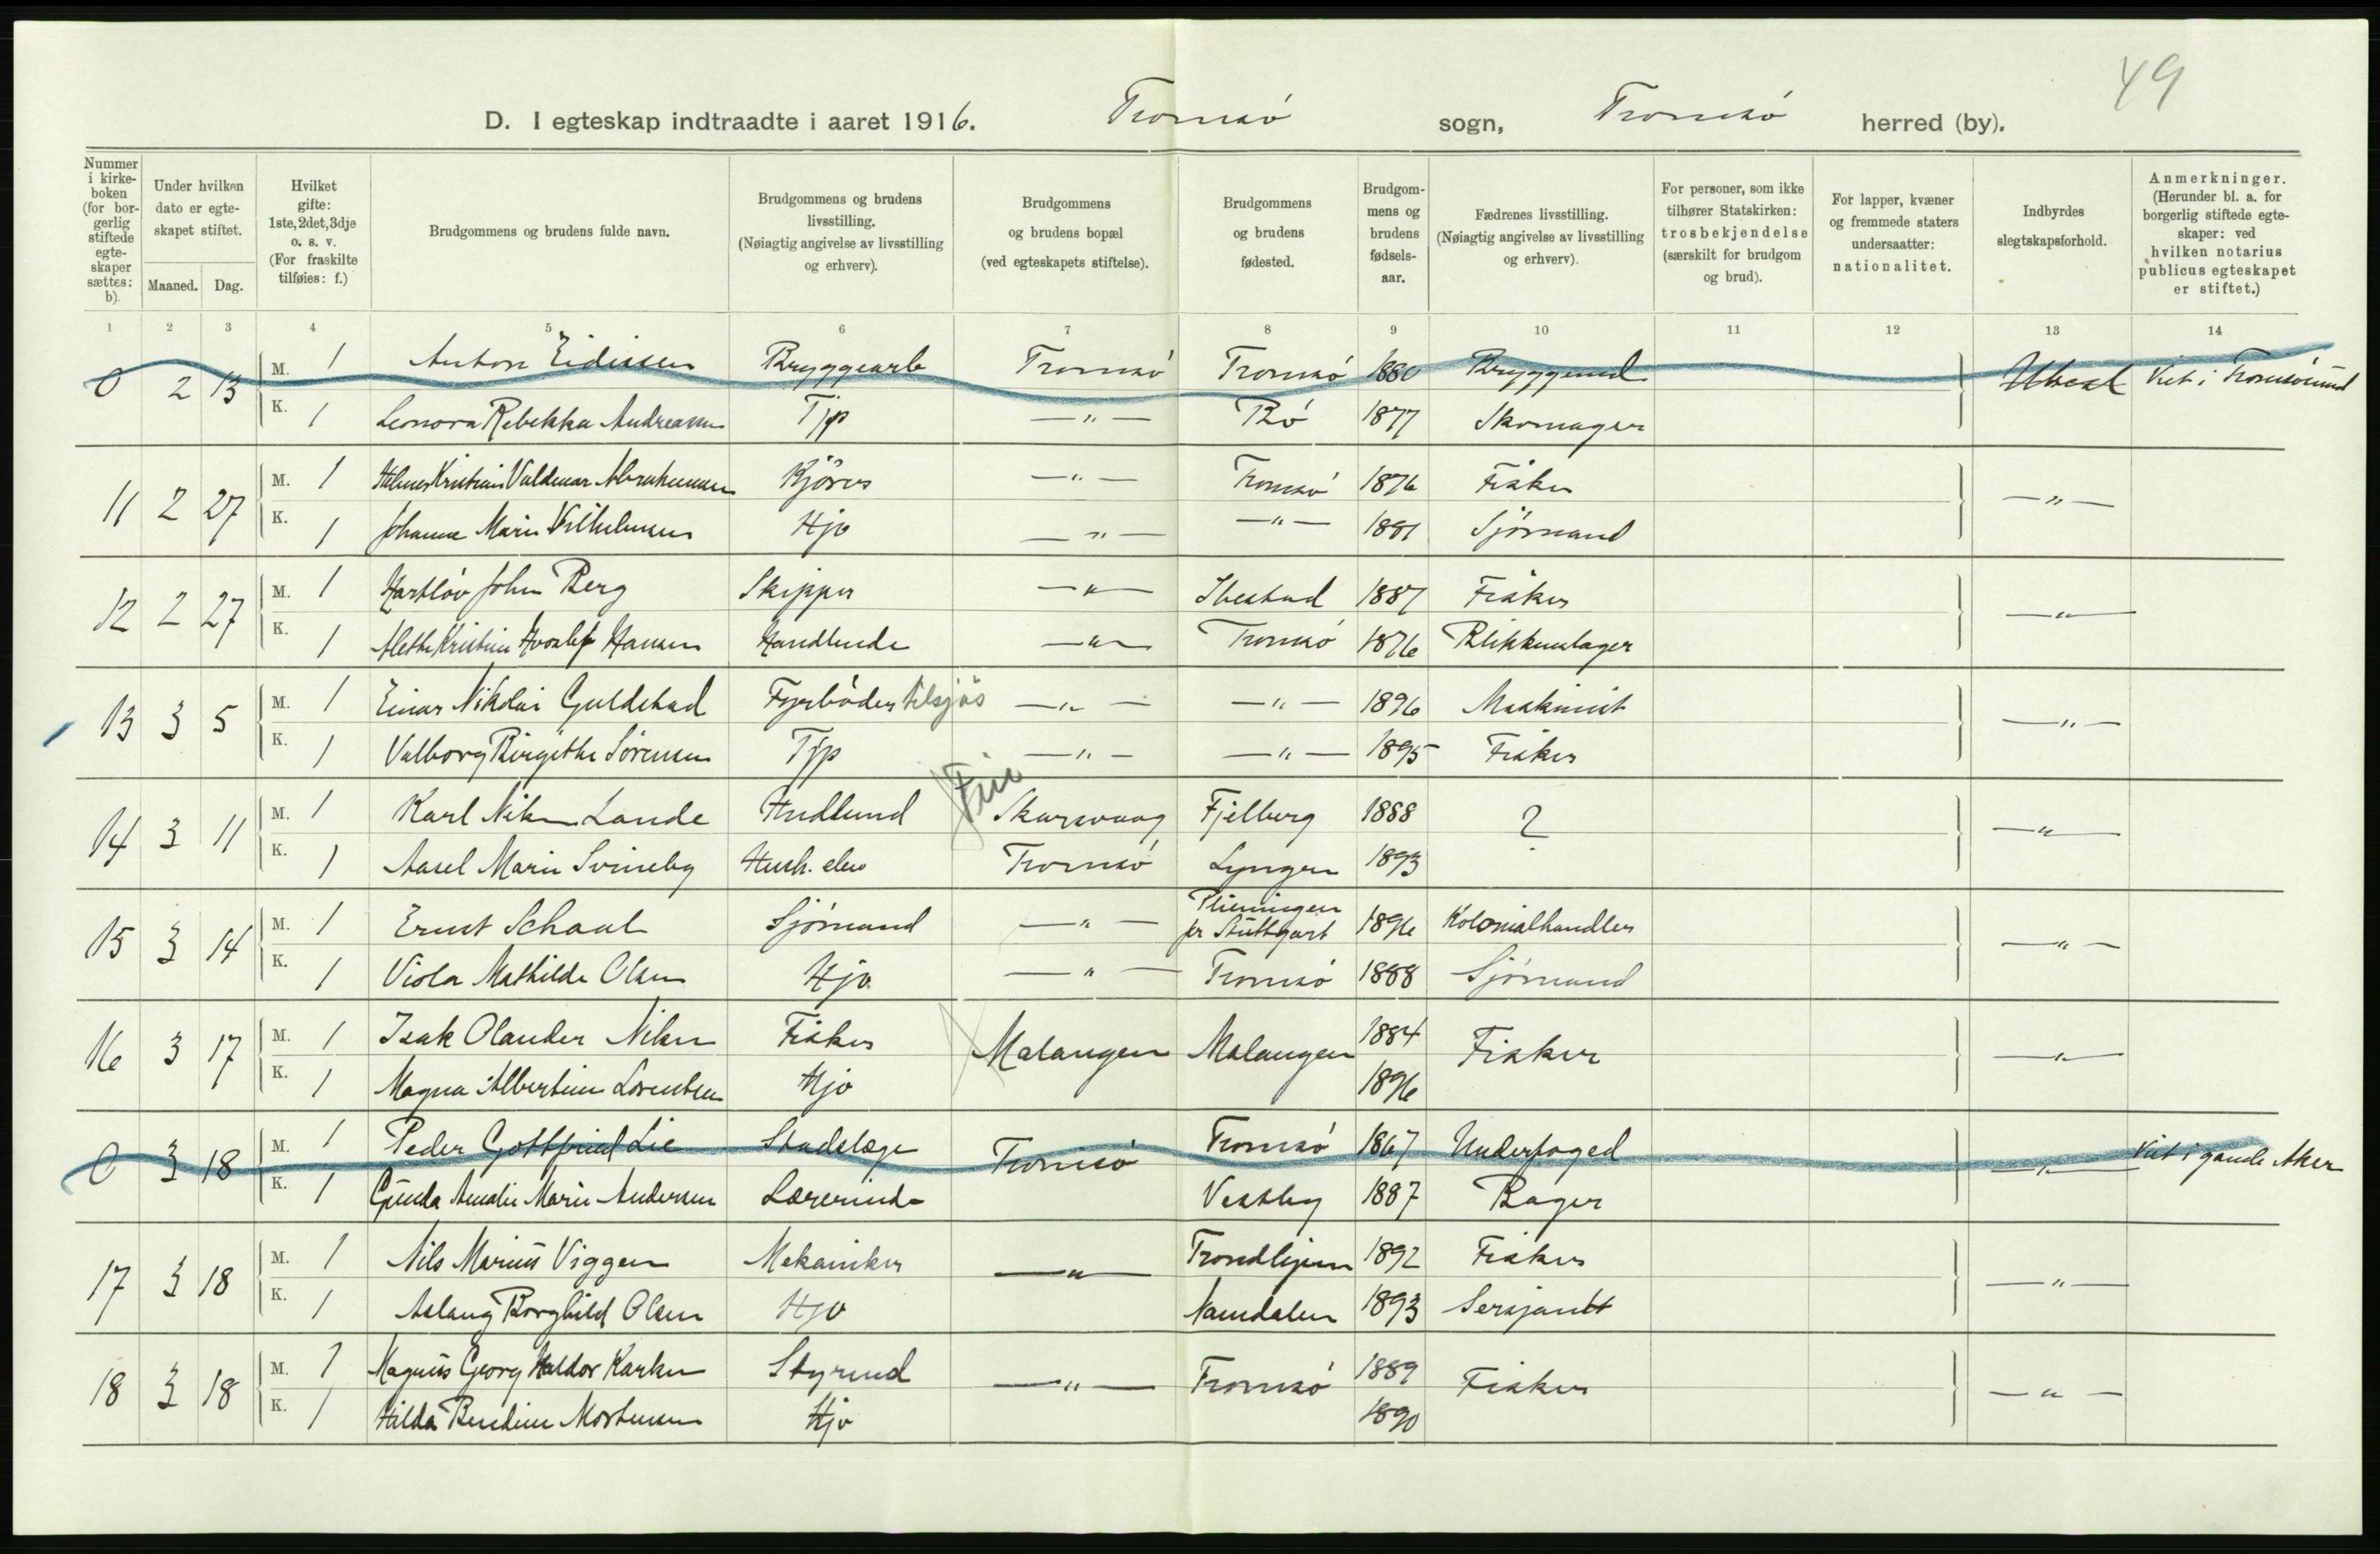 49
D. I egteskap indtraadte i aaret 1916. Tromsø sogn, Tromsø herred (by).
Nummer i kirkeboken (for borgerlig stiftede egteskaper sættes: b).
Under hvilken dato er egteskapet stiftet.
Maaned. Dag.
Hvilket gifte: 1ste, 2det, 3dje o. s. v. (For fraskilte tilføies: f.)
Brudgommens og brudens fulde navn.
Brudgommens og brudens livsstilling. (Nøiagtig angivelse av livsstilling og erhverv).
Brudgommens og brudens bopæl (ved egteskapets stiftelse).
Brudgommens og brudens fødested.
Brudgommens og brudens fødselsaar.
Fædrenes livsstilling. (Nøiagtig angivelse av livsstilling og erhverv).
For personer, som ikke tilhører Statskirken: trosbekjendelse (særskilt for brudgom og brud).
For lapper, kvæner og fremmede staters undersaatter: nationalitet.
Indbyrdes slegtskapsforhold.
Anmerkninger. (Herunder bl. a. for borgerlig stiftede egteskaper: ved hvilken notarius publicus egteskapet er stiftet.)
1 2 3 4 5 6 7 8 9 10 11 12 13 14
0 2 13 M. 1 Anton Eidissen Bryggearb Tromsø Tromsø 1880 Bryggemd Ubesl Viet i Tromsøsund
K. 1 Leonora Rebekka Andreassen Tjp —„— Bø 1877 Skomager
11 2 27 M. 1 Hilmer Kristian Valdemar Abrahamsen Kjører —„— Tromsø 1876 Fisker —„—
K. 1 Johanne Marie Vilhelmsen Hjo —„— —„— 1881 Sjømand
12 2 27 M. 1 Hartløv John Berg Skipper —„— Ibestad 1887 Fisker —„—
K. 1 Alethe Kristine Hansen Handlende —„— Tromsø 1876 Blikkenslager
13 3 5 M. 1 Einar Nikolai Guldstad Fyrbøder tilsjøs —„— —„— 1896 Maskinist —„—
K. 1 Valborg Birgithe Sørensen Tjp —„— —„— 1895 Fisker
14 3 11 M. 1 Karl Niksen Lande Hndlund Fin Skarsvaag Fjelberg 1888 ? —„—
K. 1 Aasel Marie Svineby Hush. elev Tromsø Lyngen 1893
15 3 14 M. 1 Ernst Schaal Sjømand —„— Plieningen pr Stuttgart 1896 Kolonialhandler —„—
K. 1 Viola Mathilde Olsen Hjo. —„— Tromsø 1888 Sjømand
16 3 17 M. 1 Isak Olander Nilsen Fisker Malangen Malangen 1884 Fisker —„—
K. 1 Magna Albertine Lorentsen Hjo 1896
0 3 18 M. 1 Peder Gottfried Lie Stadslæge Tromsø Tromsø 1867 Underfoged —„— Viet i gamle Aker
K. 1 Gunda Amalie Marie Andersen Lærerinde Vestby 1887 Bager
17 3 18 M. 1 Nils Marius Viggen Mekaniker —„— Trondhjem 1892 Fisker —„—
K. 1 Aslaug Borghild Olsen Hjo Namdalen 1893 Sersjandt
18 3 18 M. 1 Magnus Georg Haldor Karlsen Styrmd —„— Tromsø 1889 Fisker —„—
K. 1 Hilda Bendine Mortensen Hjo 1890